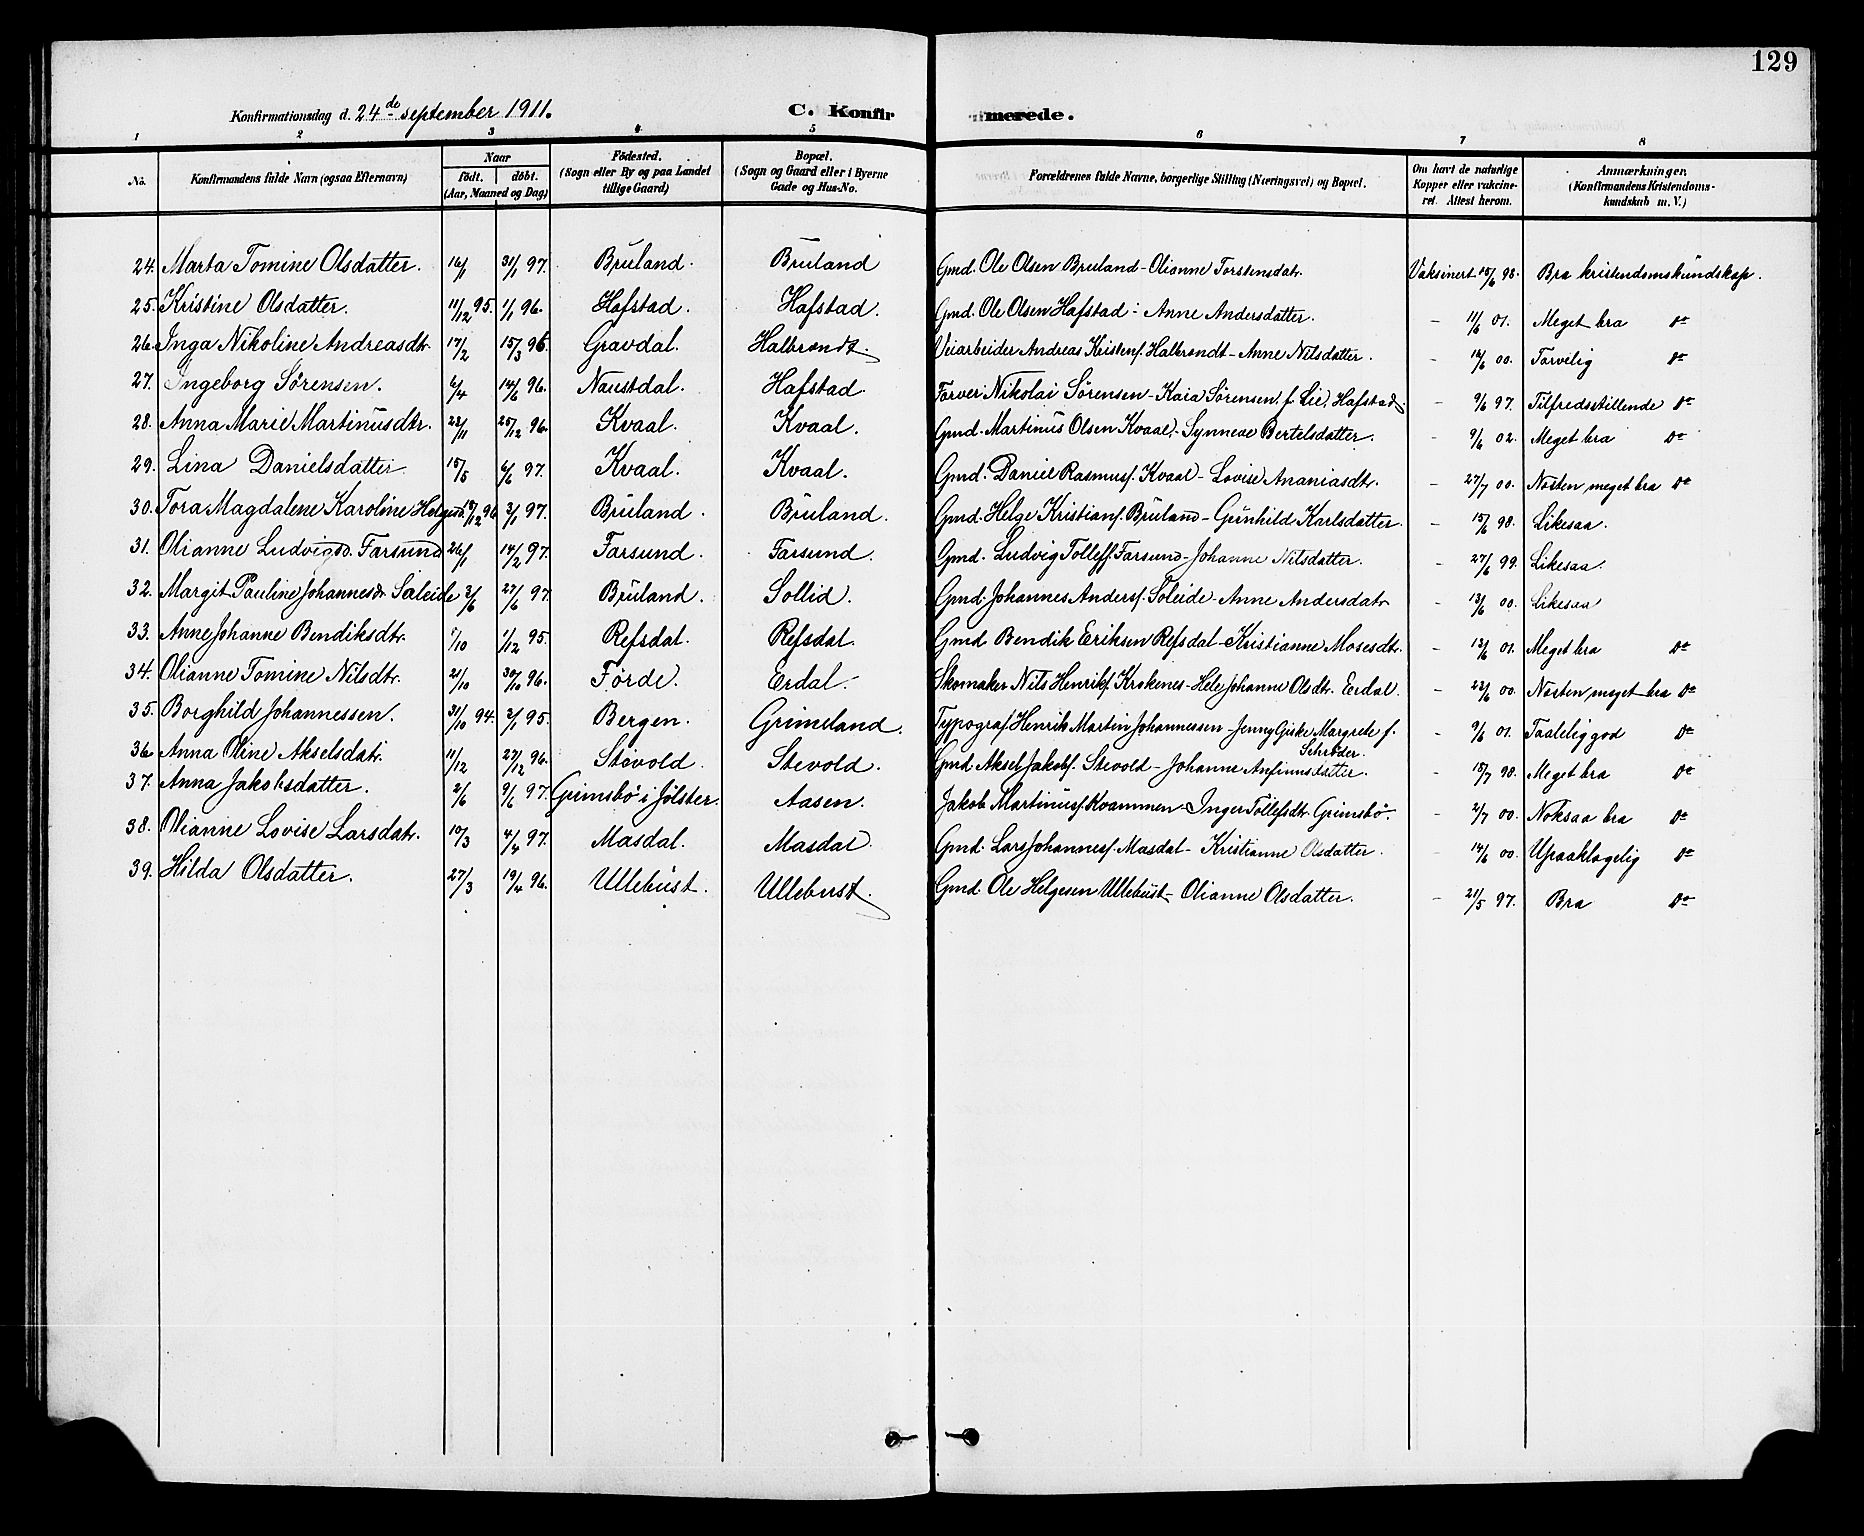 129
Konfirmationsdag d. 24de september 1911.
C. Konfirmerede.
1 2 3 4 5 6 7 8
No. Konfirmandens fulde Navn (ogsaa Efternavn) Naar födt. döbt. (Aar, Maaned og Dag) Födested. (Sogn eller By og paa Landet tillige Gaard) Bopæl. (Sogn og Gaard eller i Byerne Gade og Hus-No. Forældrenes fulde Navne, borgerlige Stilling (Næringsvei) og Bopæl. Om havt de naturlige Kopper eller vakcineret. Attest herom. Anmærkninger. (Konfirmandens Kristendomskundskab m. V.)
24. Marta Tomine Olsdatter. 16/1 31/1 97. Bruland. Bruland Gmd. Ole Olsen Bruland - Olianne Torstensdatr. Vaksinert 15/6 98. Bra kristendomskundskap.
25. Kristine Olsdatter. 11/12 95. 1/1 96. Hafstad. Hafstad. Gmd. Ole Olsen Hafstad - Anne Andersdatter. - 11/6 01. Meget bra Do
26. Inga Nikoline Andreasdtr. 17/2 15/3 96. Gravdal. Halbrendt. Veiarbeider Andreas Kristens. Halbrendt - Anne Nilsdatter. - 12/6 00. Tarvelig Do
27. Ingeborg Sörensen. 6/4 14/6 96. Naustdal. Hafstad. Farver Nikolai Sörensen - Kaia Sörensen f. Lie, Hafstad. - 9/6 97. Tilfredsstillende Do
28. Anna Marie Martinusdtr. 23/11 25/12 96. Kvaal. Kvaal. Gmd. Martinus Olsen Kvaal - Synneve Bertelsdatter. - 9/6 02. Meget bra Do
29. Lina Danielsdatter. 15/5 6/6 97. Kvaal. Kvaal. Gmd. Daniel Rasmuss. Kvaal - Lovise Ananiasdtr. - 27/7 00. Næsten meget bra Do
30. Tora Magdalene Karoline Helgesd. 18/12 96 3/1 97. Bruland. Bruland. Gmd. Helge Kristians. Bruland - Gunhild Karlsdatter. - 15/6 98. Likesaa.
31. Olianne Ludvigsd. Farsund 26/1 14/2 97. Farsund. Farsund. Gmd. Ludvig Tollefs. Farsund - Johanne Nilsdatter. - 27/6 99. Likesaa.
32. Margit Pauline Johannesdr. Soleide 3/6 27/6 97. Bruland. Sollid. Gmd. Johannes Anders. Soleide - Anne Andersdatr - 13/6 00. Likesaa
33. Anne Johanne Bendiksdtr. 1/10 1/12 95. Refsdal. Refsdal. Gmd Bendik Eriksen Refsdal - Kristianne Mosesdtr. - 13/6 01. Meget bra Do
34. Olianne Tomine Nilsdtr. 21/10 30/10 96. Førde. Erdal. Skomaker Nils Henriks. Krokenes - Hele Johanne Olsdtr. Eerdal. - 23/6 00. Næsten meget bra Do
35. Borghild Johannessen. 31/10 94. 3/1 95. Bergen. Grimeland. Typograf Henrik Martin Johannessen - Jenny Giske Margrete f. Schröder. - 9/6 01. Taalelig god Do
36 Anna Oline Akselsdatr. 11/12 27/12 96. Støvold. Stevold. Gmd Aksel Jakobs. Stevold - Johanne Anfinnsdatter. - 15/7 98. Meget bra Do
37. Anna Jakobsdatter. 2/6 9/6 97. Grimsbö i Jölster. Aasen. Jakob Martinuss. Kvammen - Inger Tollefsdtr Grimsbö. - 2/7 00. Noksaa bra Do
38. Olianne Lovise Larsdatr. 10/3 4/4 97. Masdal. Masdal. Gmd. Lars Johanness. Masdal - Kristianne Olsdatter. - 14/6 00. Upaaklagelig Do
39. Hilda Olsdatter. 27/3 19/4 96. Ullebust. Ullebust. Gmd Ole Helgesen Ullebust - Olianne Olsdatter. - 21/5 97. Bra Do